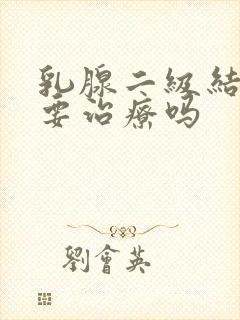 乳腺二級結
要治療吗
劉會英